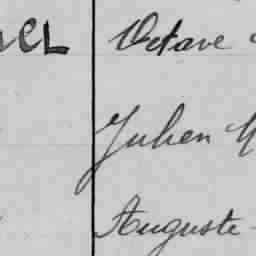 Octave
Julien
Auguste